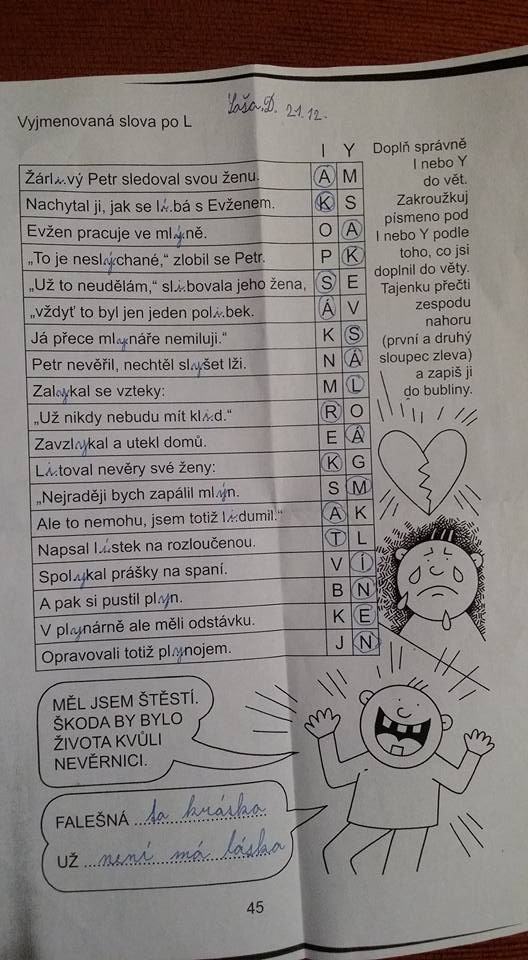 Saša.D. 21.12.
Vyjmenovaná slova po L
I Y
Žárlivý Petr sledoval svou ženu. A M
Nachytal ji, jak se líbá s Evženem. K S
Evžen pracuje ve mlýně. O A
„To je neslýchané,“ zlobil se Petr. P K
„Už to neudělám,“ slibovala jeho žena, S E
„vždyť to byl jen jeden polibek. Á V
Já přece mlynáře nemiluji.“ K S
Petr nevěřil, nechtěl slyšet lži. N Á
Zalykal se vzteky: M L
„Už nikdy nebudu mít klid.“ R O
Zavzlykal a utekl domů. E Á
Litoval nevěry své ženy: K G
„Nejraději bych zapálil mlýn. S M
Ale to nemohu, jsem totiž lidumil.“ A K
Napsal lístek na rozloučenou. T L
Spolykal prášky na spaní. V Í
A pak si pustil plyn. B N
V plynárně ale měli odstávku. K E
Opravovali totiž plynojem. J N
Doplň správně
I nebo Y
do vět.
Zakroužkuj
písmeno pod
I nebo Y podle
toho, co jsi
doplnil do věty.
Tajenku přečti
zespodu
nahoru
(první a druhý
sloupec zleva)
a zapiš ji
do bubliny.
MĚL JSEM ŠTĚSTÍ.
ŠKODA BY BYLO
ŽIVOTA KVŮLI
NEVĚRNICI.
FALEŠNÁ ta kráska
UŽ není má láska
45